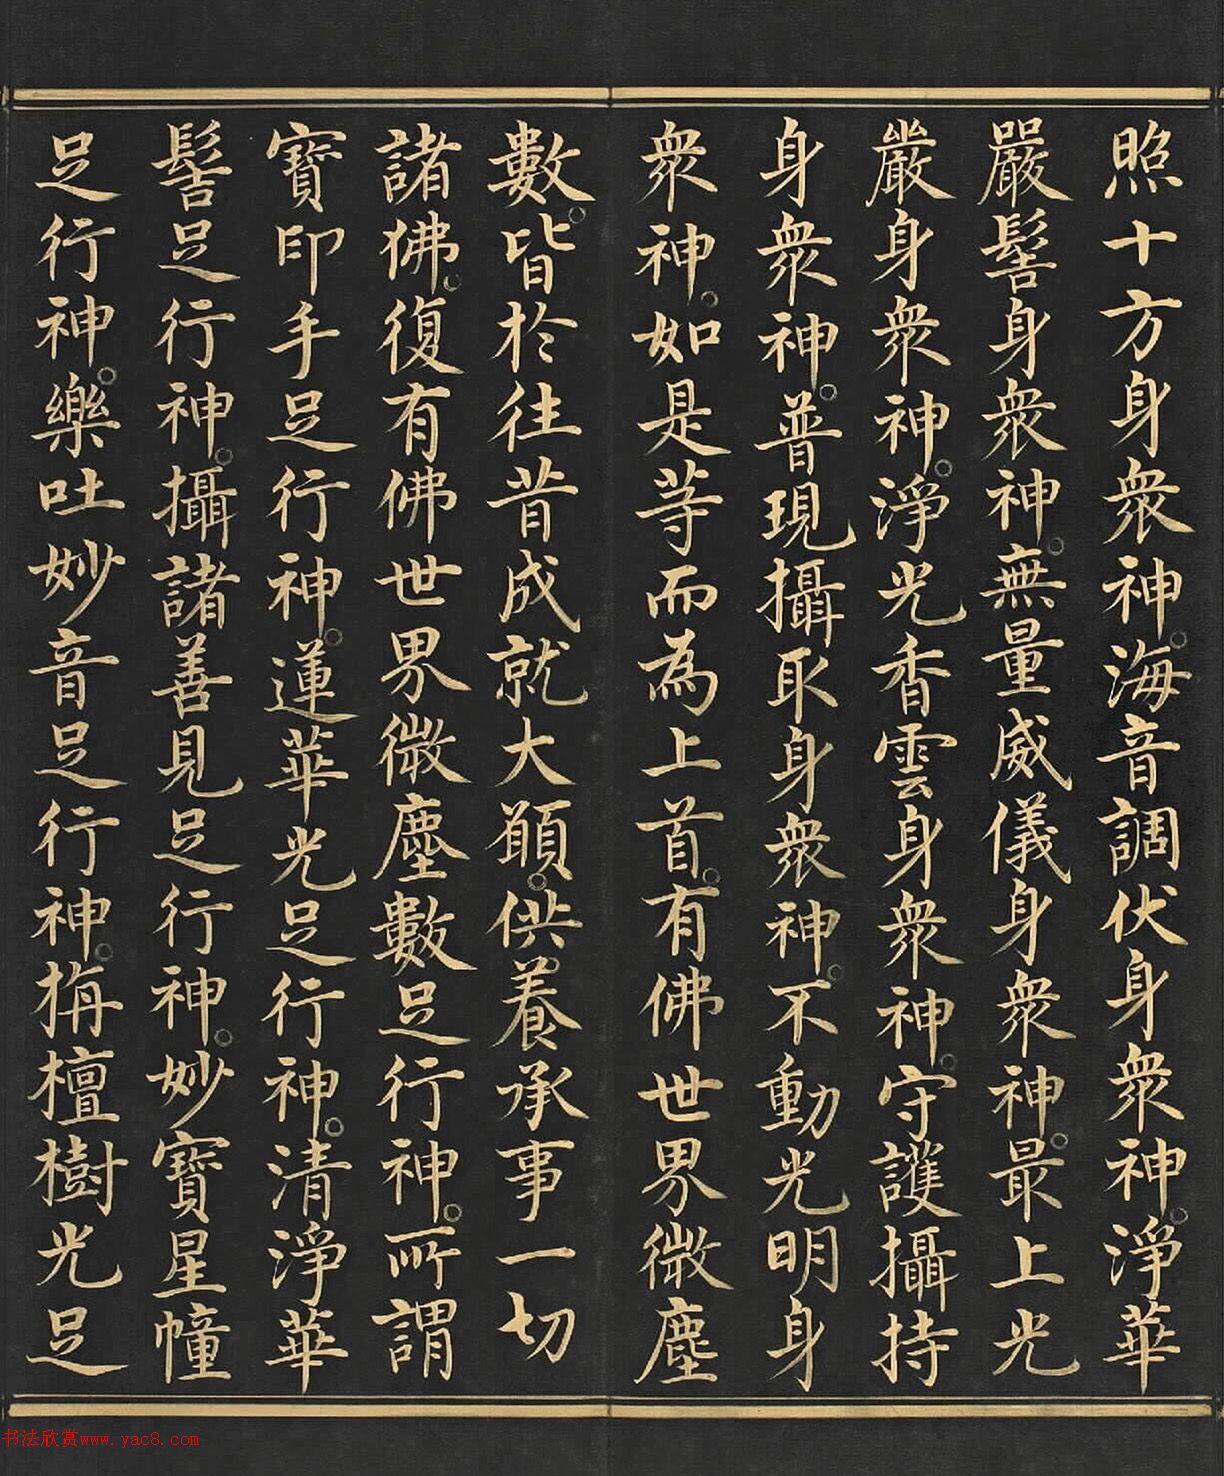 照十方身衆神。海音調伏身衆神。淨華
嚴髻身衆神。無量威儀身衆神。最上光
嚴身衆神。淨光香雲身衆神。守護攝持
身衆神。普現攝取身衆神。不動光明身
衆神。如是等而為上首。有佛世界微塵
數。皆於往昔成就大願。供養承事一切
諸佛。復有佛世界微塵數足行神。所謂
寶印手足行神。蓮華光足行神。清淨華
髻足行神。攝諸善見足行神。妙寶星幢
足行神。樂吐妙音足行神。栴檀樹光足
书法欣赏www.yac8.com